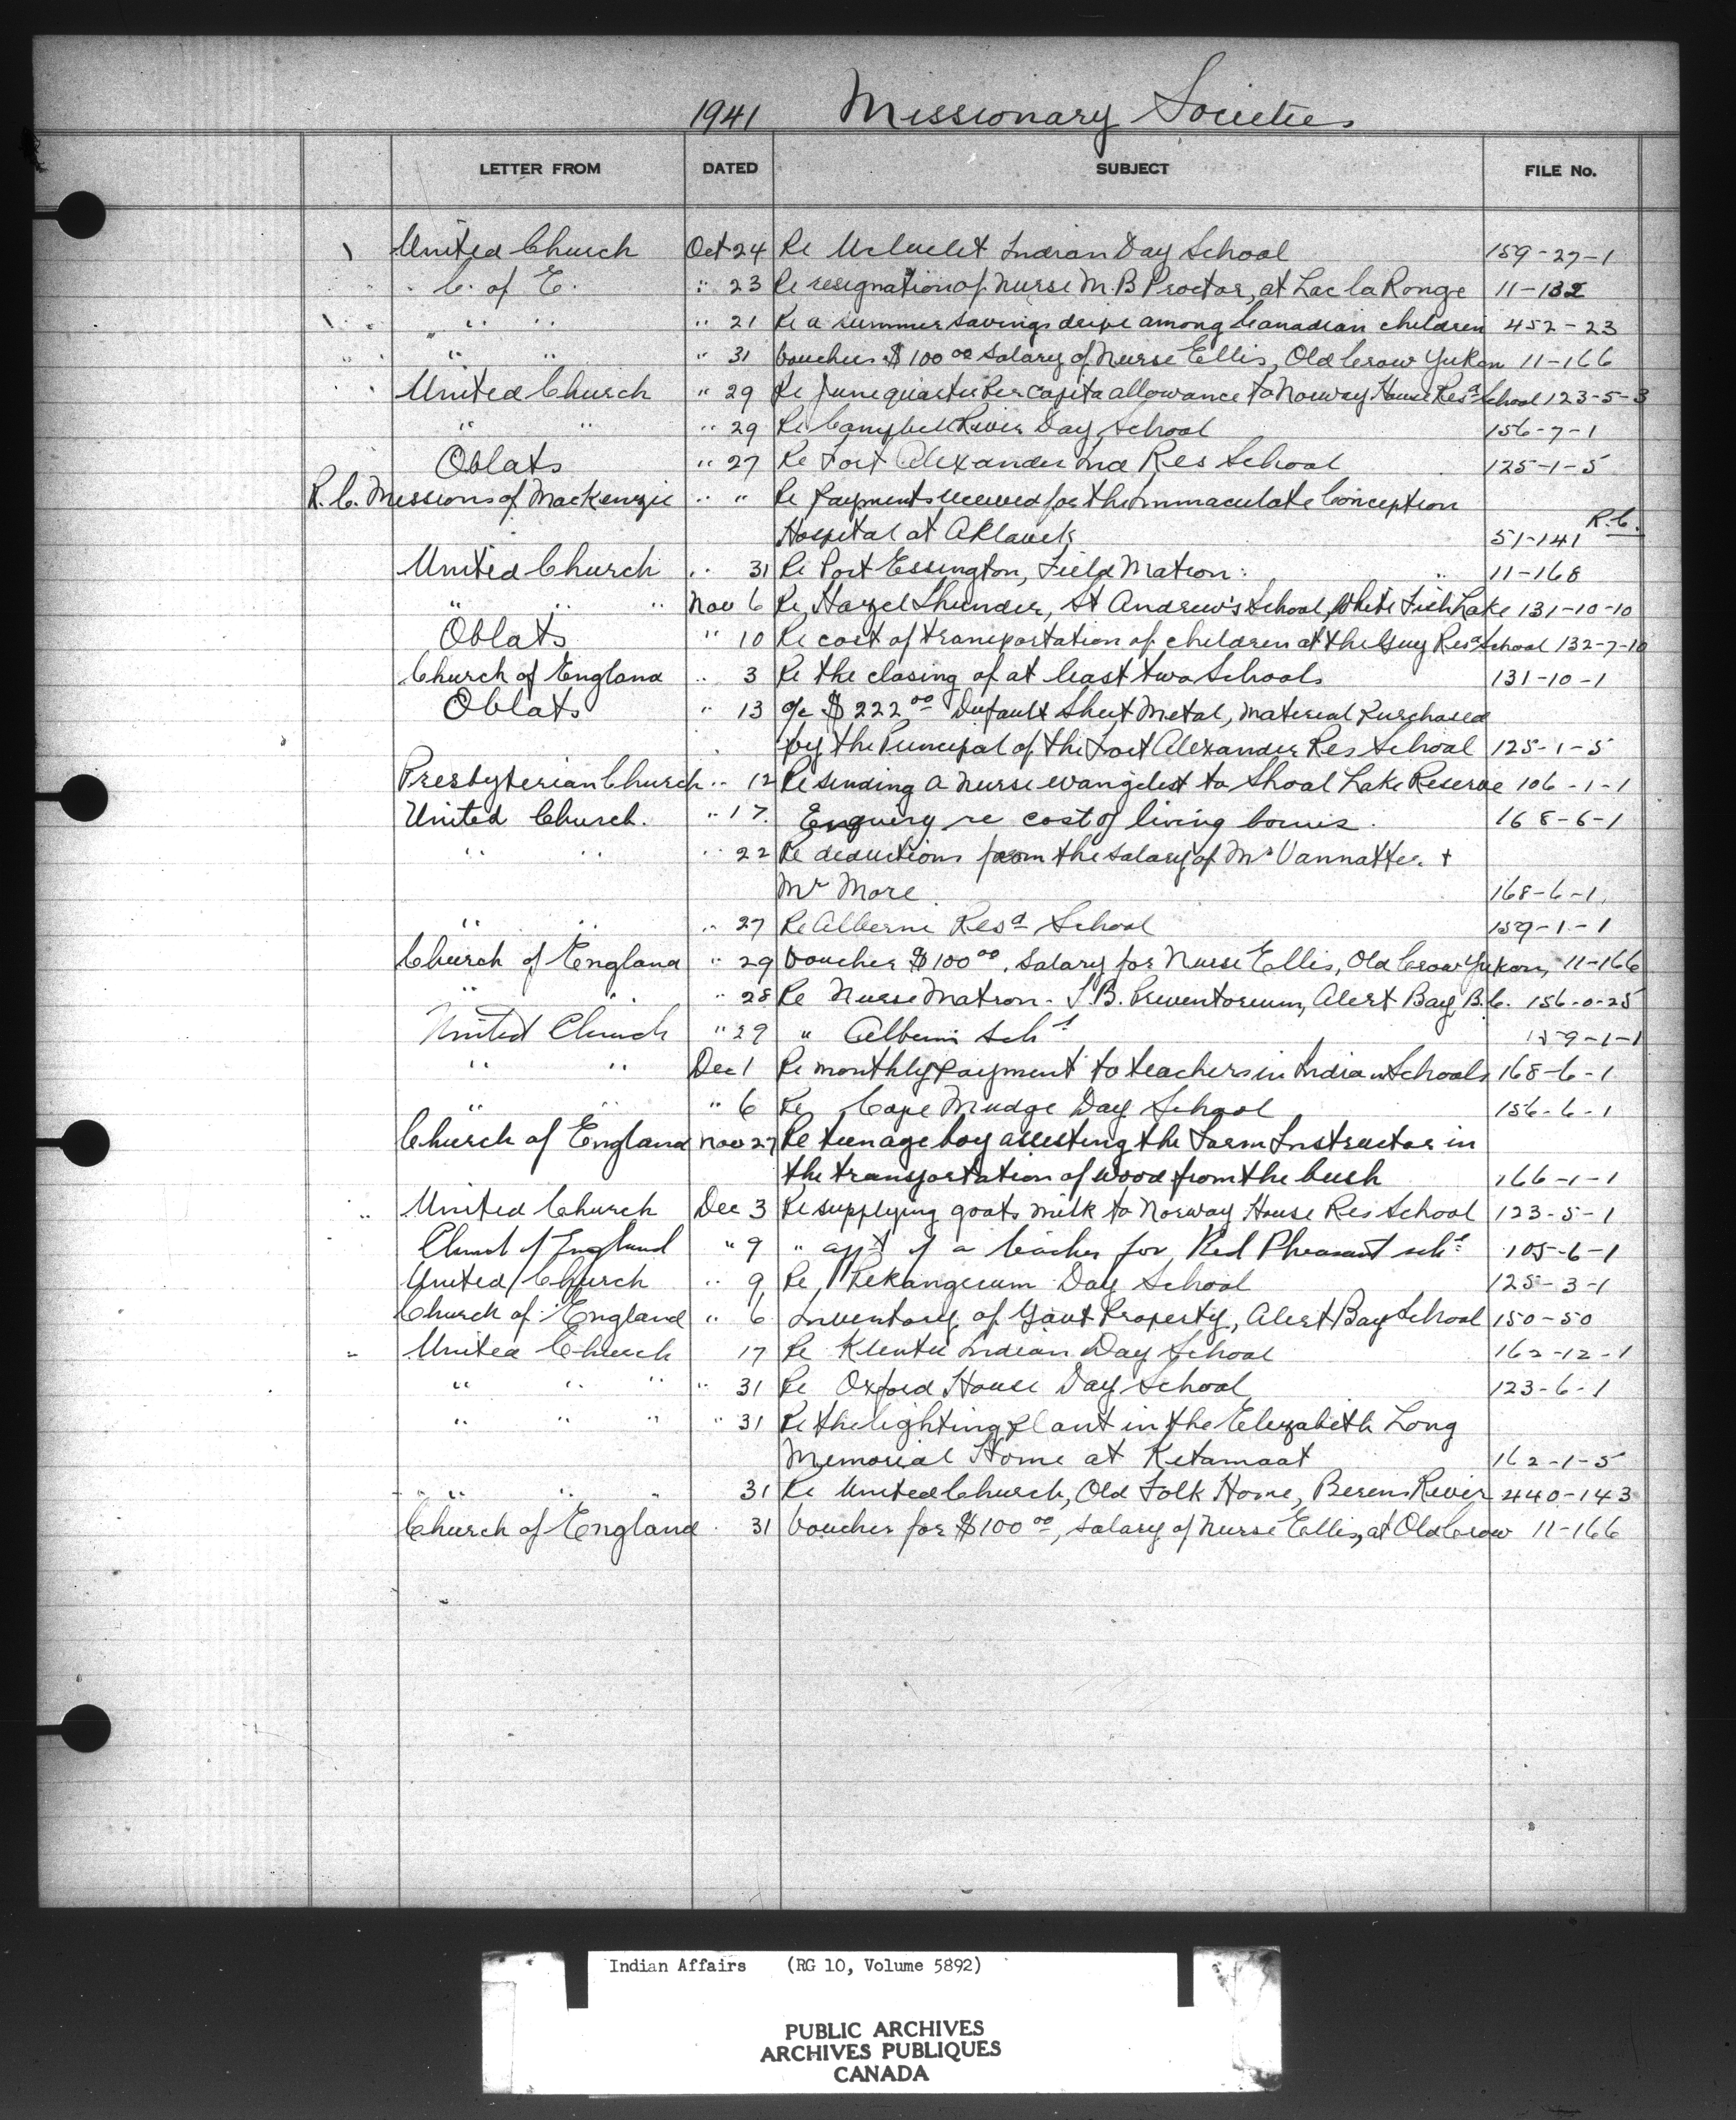 1941 Missionary Societies
LETTER FROM DATED SUBJECT FILE No.
United Church Oct 24 Re Ucluelet Indian Day School 159-27-1
C. of E. " 23 Re resignation of Nurse M. B Proctor, at Lac la Ronge 11-132
" " " " 21 Re a summer savings drive among Canadian children 452-23
" " " 31 Voucher $100 00 Salary of Nurse Ellis, Old Crow Yukon 11-166
United Church " 29 Re June quarter Per capita allowance to Norway House Resd School 123-5-3
" " " 29 Re Campbell River Day School 156-7-1
Oblats " 27 Re Fort Alexander Ind Res School 125-1-5
R. C. Missions of Mackenzie " " Re Payments received for the Immaculate Conception
Hospital at Aklavik 51-141 R.C.
United Church " 31 Re Port Essington, Field Matron: 11-168
" " " Nov 6 Re, Hazel Shunder, St Andrew's School, White Fish Lake 131-10-10
Oblats " 10 Re cost of transportation of children at the Guy Resd School 132-7-10
Church of England " 3 Re the closing of at least two Schools 131-10-1
Oblats " 13 a/c $222 00 Dufault Sheet Metal, material Purchased
by the Principal of the Fort Alexander Res School 125-1-5
Presbyterian Church " 12 Re sending a nurse evangelist to Shoal Lake Reserve 106-1-1
United Church. " 17. Enquiry re cost of living bonus. 168-6-1
" " " 22 Re deductions from the salary of Mr Vannatter +
Mr More 168-6-1.
" " " 27 Re Alberni Resd School 159-1-1
Church of England " 29 Voucher $100 00, Salary for Nurse Ellis, Old Crow Yukon, 11-166
" " " 28 Re Nurse Matron - T. B. Preventorium, Alert Bay, B. C. 156-0-25
United Church " 29 " Alberni Schl 159-1-1
" " Dec 1 Re monthly payment to teachers in Indian Schools 168-6-1
" " " 6 Re Cape Mudge Day School 156-6-1
Church of England Nov 27 Re teenage boy assisting the Farm Instructor in
the transportation of wood from the bush 166-1-1
United Church Dec 3 Re supplying goats milk to Norway House Res School 123-5-1
Church of England " 9 " appt of a teacher for Red Pheasant schl 105-6-1
United Church " 9 Re, Pekangecum Day School 125-3-1
Church of England " 6 Inventory of Govt Property, Alert Bay School 150-50
United Church 17 Re Klemtu Indian Day School 162-12-1
" " " " 31 Re Oxford House Day School 123-6-1
" " " " 31 Re the lighting plant in the Elizabeth Long
Memorial Home at Ketamaat 162-1-5
" " " " 31 Re United Church, Old Folk Home, Berens River 440-143
Church of England " 31 Voucher for $100 00, salary of Nurse Ellis, at Old Crow 11-166
Indian Affairs (RG 10, Volume 5892)
PUBLIC ARCHIVES
ARCHIVES PUBLIQUES
CANADA